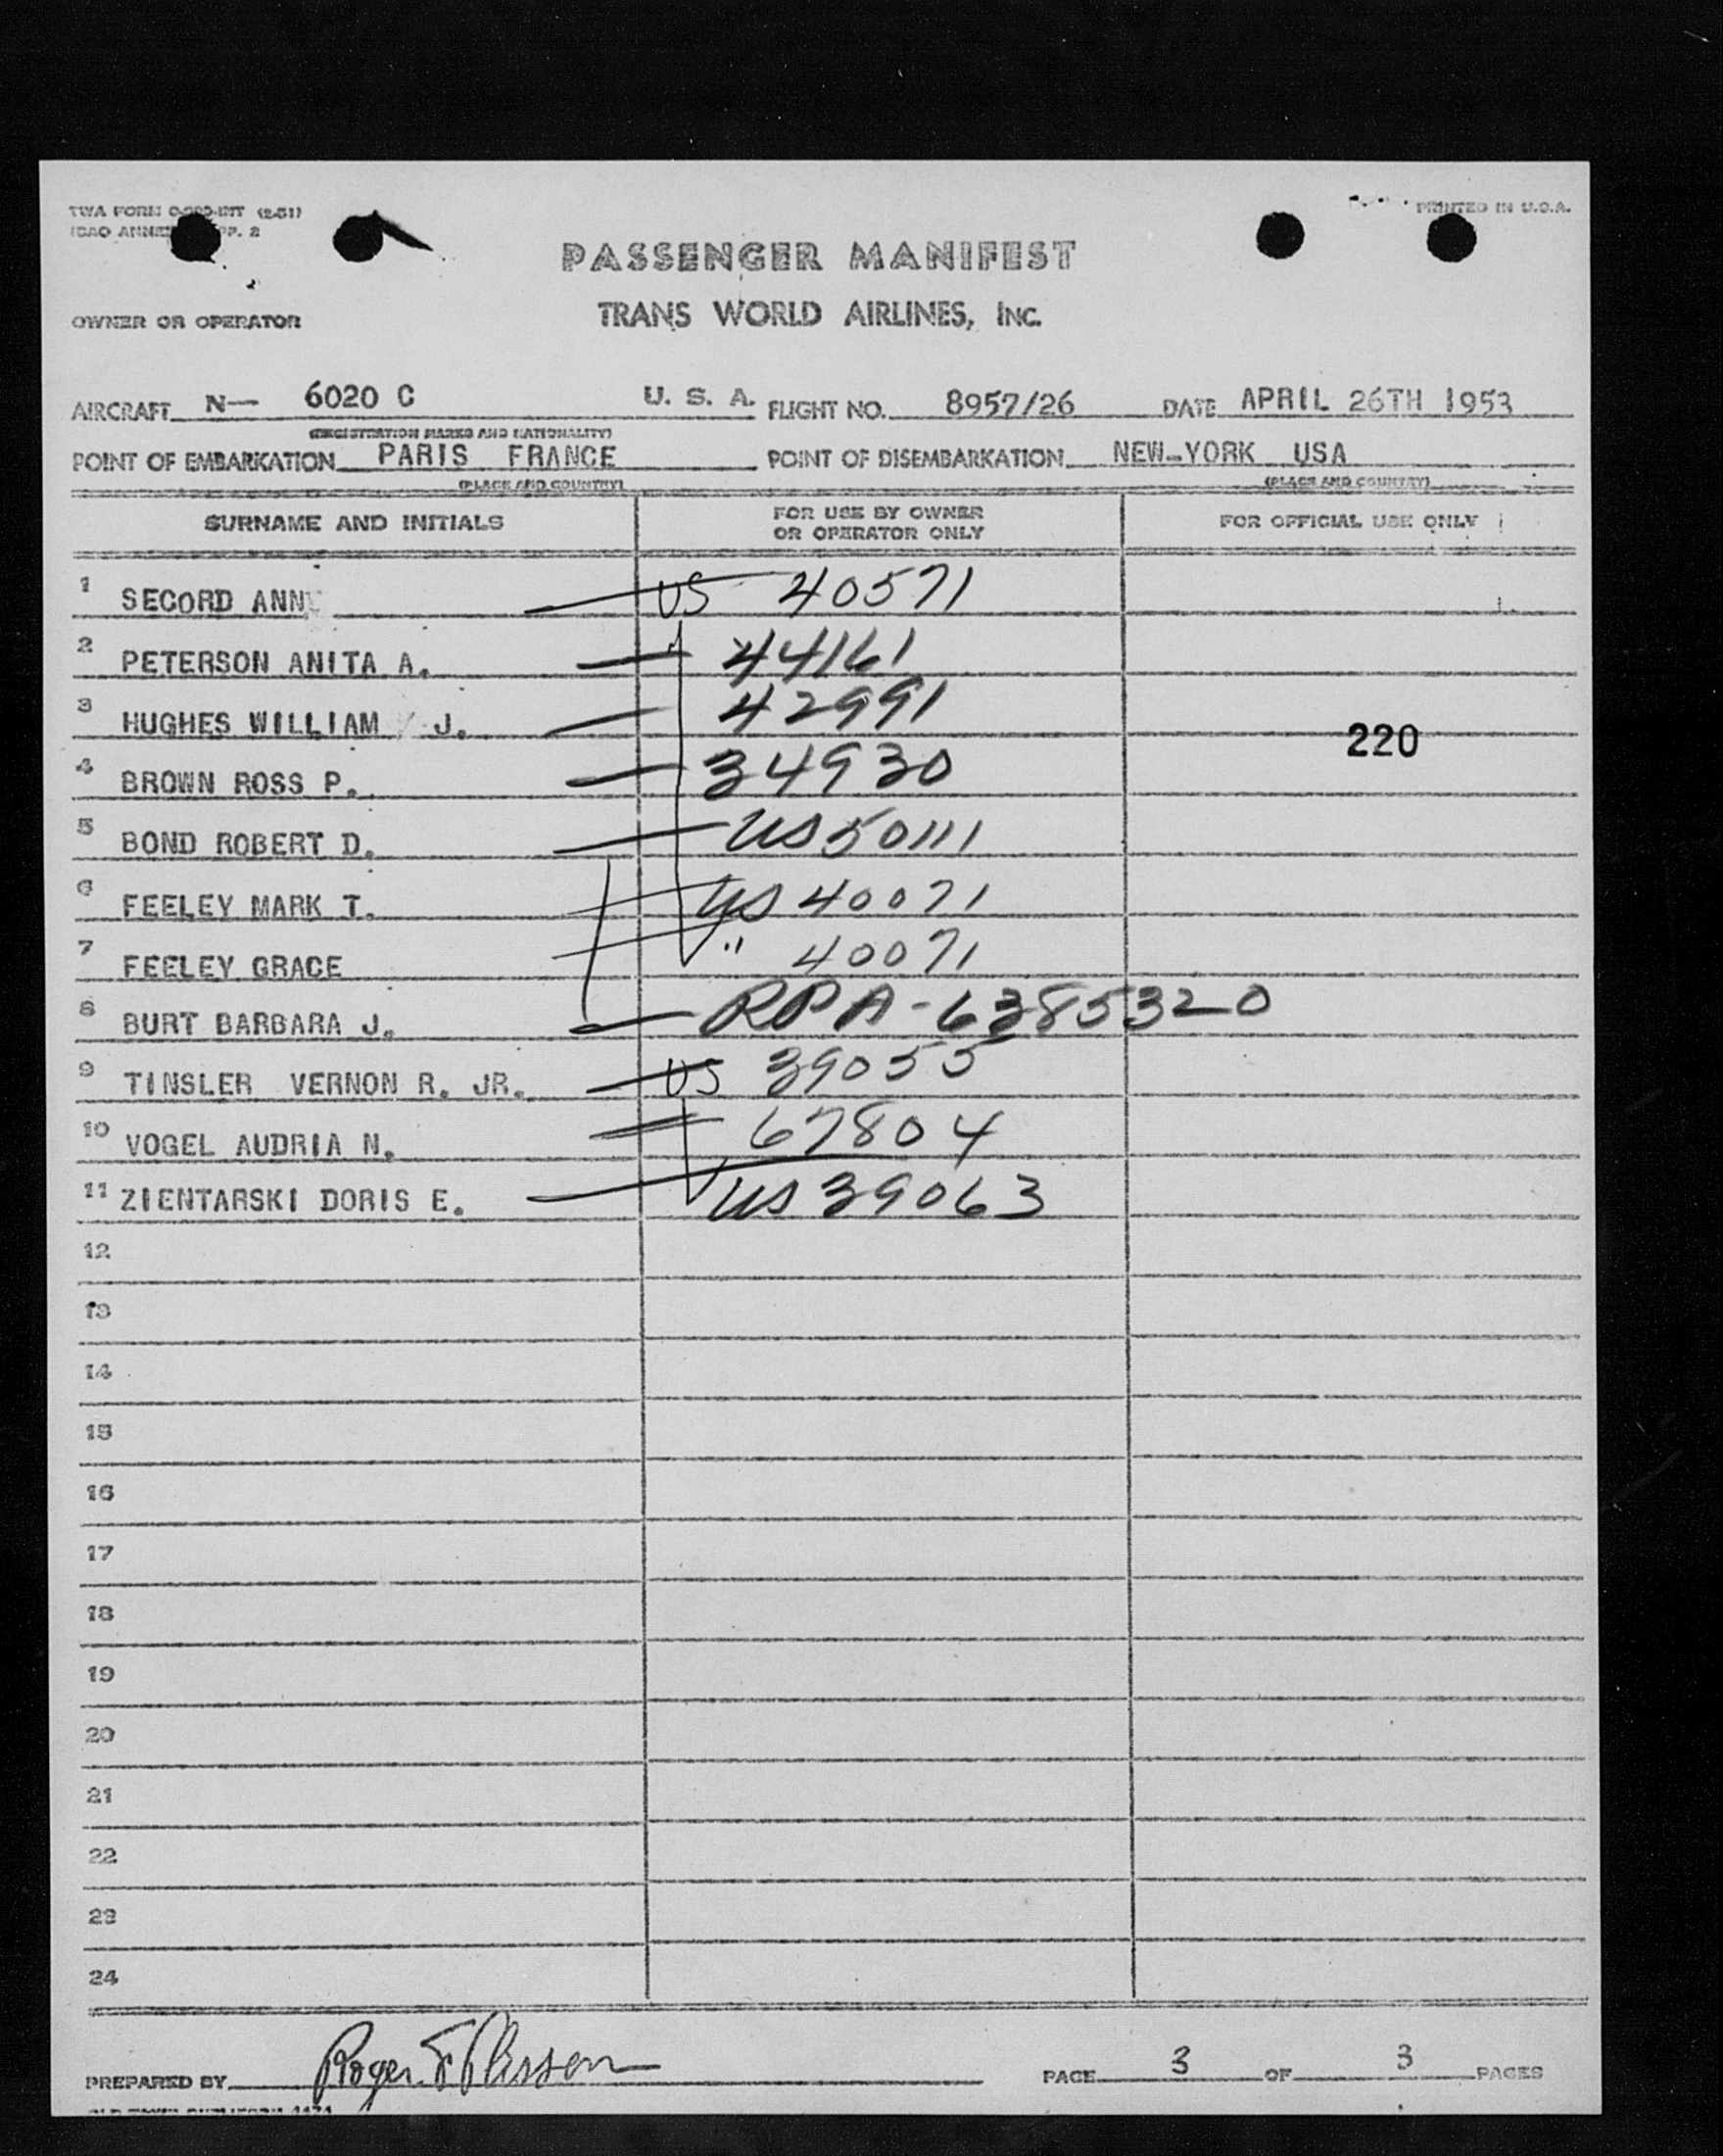 TWA FORM (2-51) PRINTED IN U.S.A.
ICAO APP. 2
PASSENGER MANIFEST
OWNER OR OPERATOR TRANS WORLD AIRLINES, INC.
AIRCRAFT N— 6020 C U. S. A. FLIGHT NO. 8957/26 DATE APRIL 26TH 1953
(REGISTRATION MARKS AND NATIONALITY)
POINT OF EMBARKATION PARIS FRANCE POINT OF DISEMBARKATION NEW-YORK USA
(PLACE AND COUNTRY) (PLACE AND COUNTRY)
SURNAME AND INITIALS FOR USE BY OWNER OR OPERATOR ONLY FOR OFFICIAL USE ONLY
1 SECORD ANN US 40571
2 PETERSON ANITA A. " 44161
3 HUGHES WILLIAM J. 42991
220
4 BROWN ROSS P. 34930
5 BOND ROBERT D. US 50111
6 FEELEY MARK T. US 40071
7 FEELEY GRACE " 40071
8 BURT BARBARA J. RPA-6385320
9 TINSLER VERNON R. JR. US 39055
10 VOGEL AUDRIA N. 67804
11 ZIENTARSKI DORIS E. US 39063
12
13
14
15
16
17
18
19
20
21
22
23
24
PREPARED BY Roger PAGE 3 OF 3 PAGES